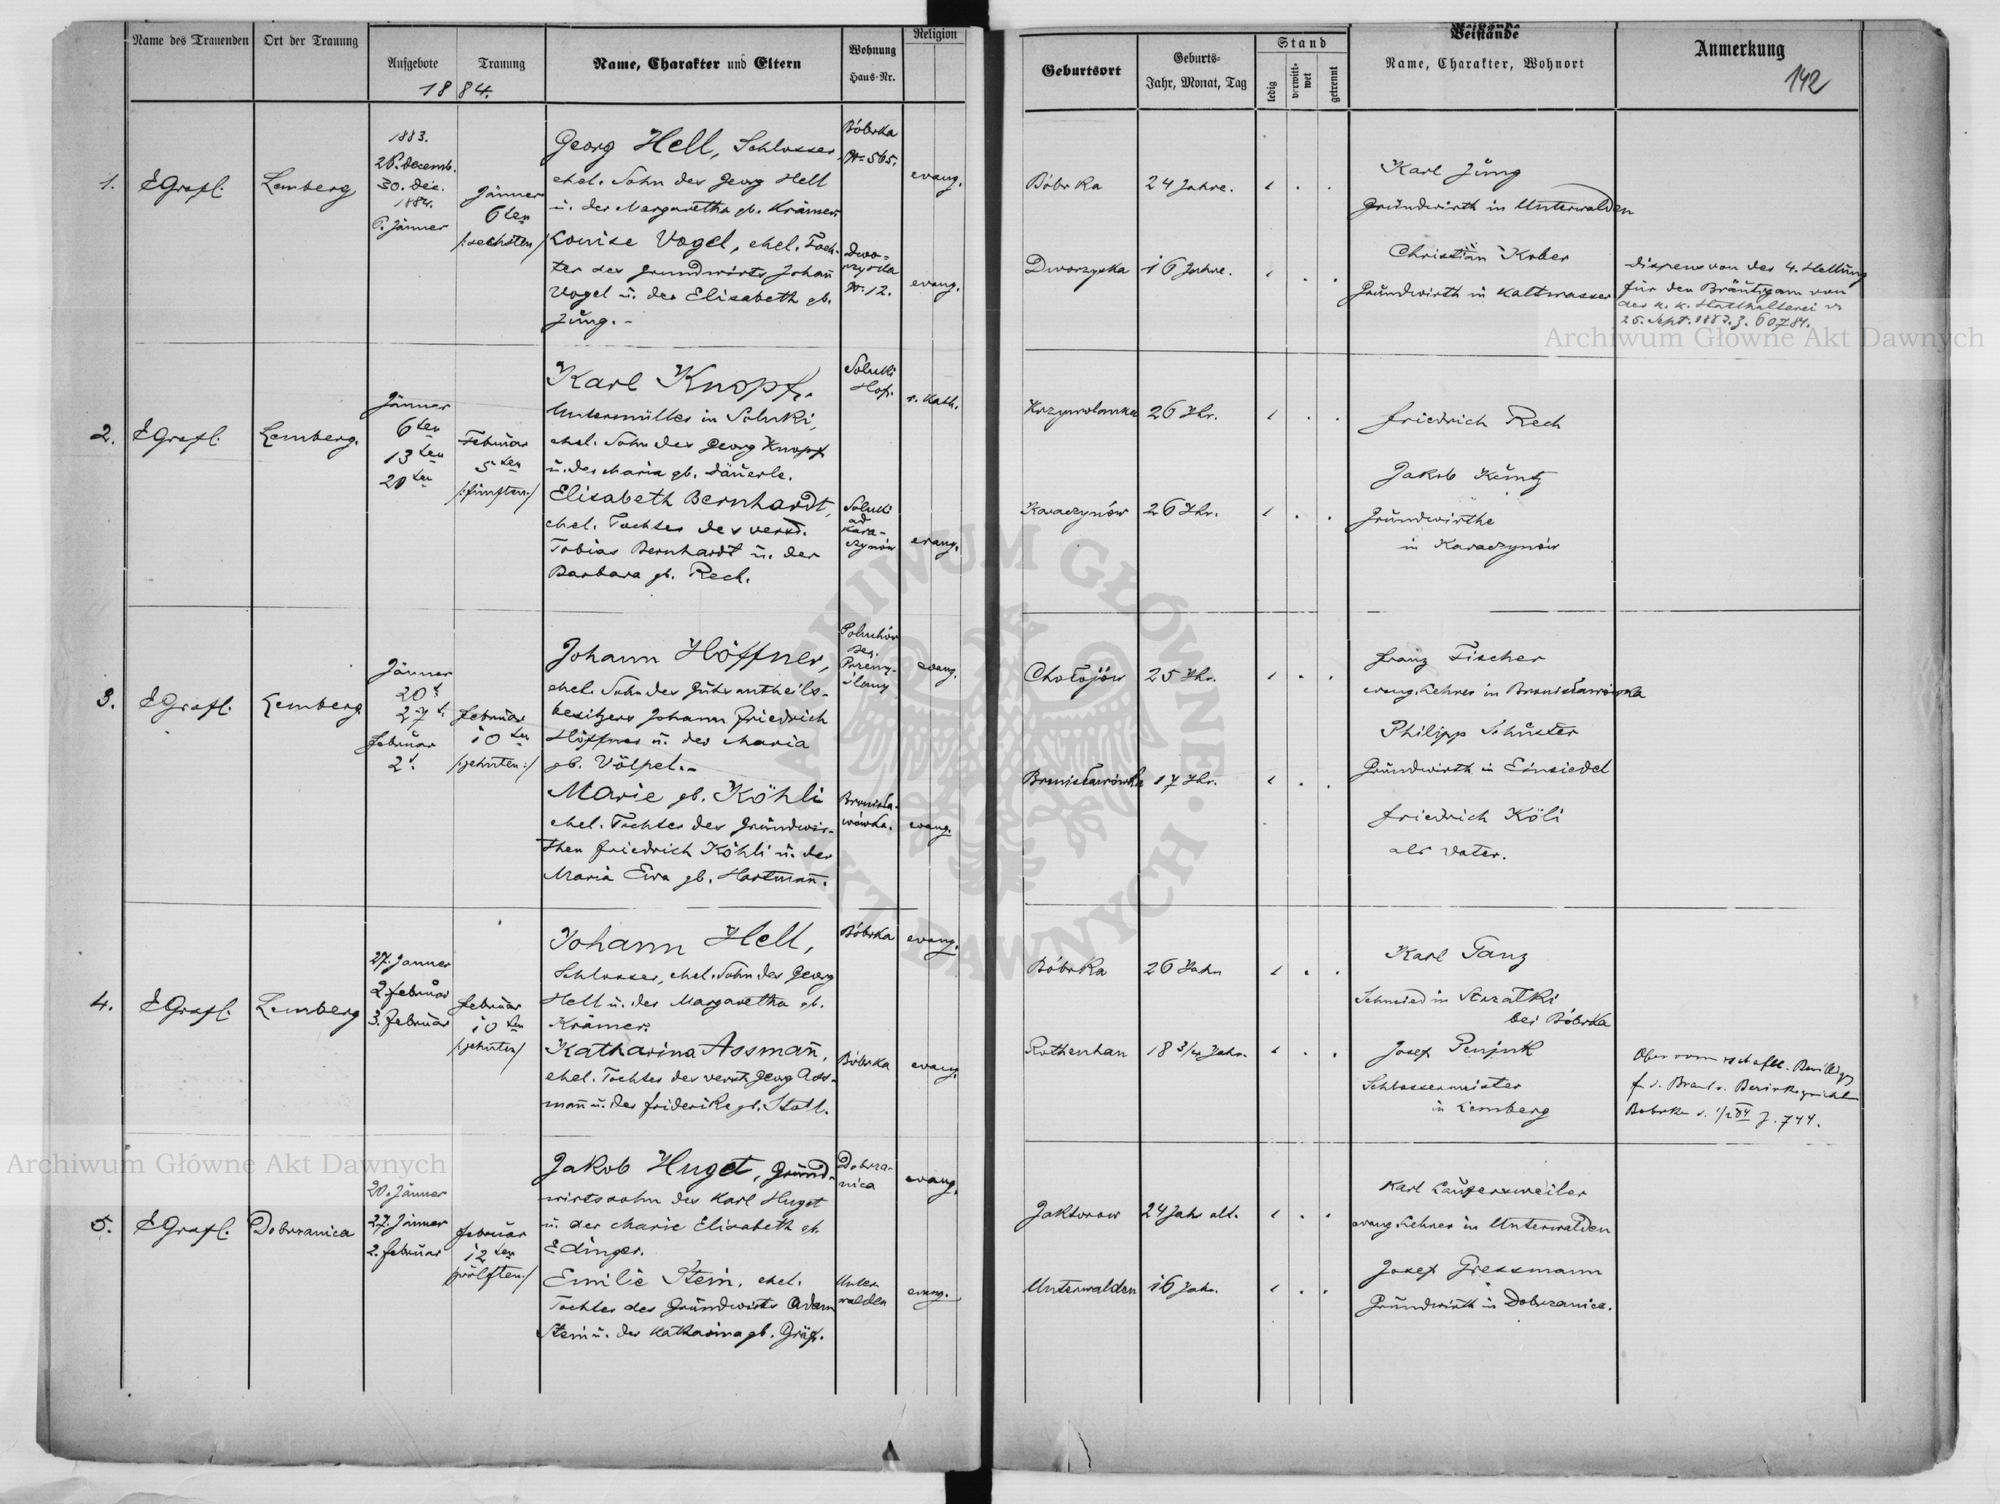 Name des Trauenden
Ort der Trauung
Aufgebote
Trauung
1884.
Name, Charakter und Eltern
Wohnung
Haus-Nr.
Religion
Geburtsort
Geburts-
Jahr, Monat, Tag
Stand
ledig
verwitt-
wet
getrennt
Beistände
Name, Charakter, Wohnort
Anmerkung
142
1.
EGrafl.
Lemberg
1883.
26. Decemb.
30. Dec.
1884.
6. Jänner
Jänner
6ten
/:sechsten/
Georg Hell, Schlosser,
ehel. Sohn des Georg Hell
u. der Margaretha gb. Krämer.
Louise Vogel, ehel. Toch-
ter des Grundwirts Johañ
Vogel u. der Elisabeth gb.
Jung.-
Bóbrka
N. 565.
Dwo-
rzyska
N. 12.
evang.
evang.
Bóbrka
24 Jahre.
Dworzyska
16 Jahre.
Karl Jung
Grundwirth in Unterwalden
Christian Kober
Grundwirth in Kaltwasser
Dispens von der 4. Stellung
für den Bräutigam von
der k. k. Statthalterei v.
25. Sept. 1883. Z. 60784.
2.
EGrafl.
Lemberg.
Jänner
6ten
13ten
20ten
Februar
5ten
/:fünften:/
Karl Knopf.
Untermüller in Soluki,
ehel. Sohn des Georg Knopf
u. der Maria gb. Däuerle.
Elisabeth Bernhardt,
ehel. Tochter des verst.
Tobias Bernhardt u. der
Barbara gb. Rech.
Soluki
Hof.
Soluki
ad
Kara-
czynów
r. kath.
evang.
Krzywolanka
26 Jhr.
Karaczynów
26 Jhr.
Friedrich Rech
Jakob Kuntz
Grundwirthe
in Karaczynów
3.
EGrafl.
Lemberg
Jänner
20t
27t.
Februar
2t.
Februar
10ten
/:zehnten:/
Johann Höffner,
ehel. Sohn des Gutsantheils-
besitzers Johann Friedrich
Höffner u. der Maria
gb. Völpel.-
Marie gb. Köhli
ehel. Tochter des Grundwir-
then Friedrich Köhli u. der
Maria Eva gb. Hartmañ.
Poluchów
Przemy-
ślany
Bronisła-
wówka.
evang.
evang.
Chołojów
25 Jhr.
Bronisławówka
17 Jhr.
Franz Fischer
evang. Lehrer in Bronisławówka
Philipp Schuster
Grundwirth in Einsiedel
Friedrich Köli
als Vater.
4.
EGrafl.
Lemberg
27. Jänner
2. Februar
3. Februar
Februar
10ten
/zehnten/
Johann Hell,
Schlosser, ehel. Sohn des Georg
Hell u. der Margaretha gb.
Krämer.
Katharina Assmañ,
ehel. Tochter des verst. Georg Ass-
mañ u. der Friderike gb. Stoll.
Bóbrka
Bóbrka
evang.
evang.
Bóbrka
26 Jahr
Rothenhan
18 3/4 Jahr.
Karl Ganz
Schmied in Strzałki
bei Bóbrka
Josef Penjuk
Schlossermeister
in Lemberg
f. d. Braut v. Bezirksgericht
Bobrka v. 1/2 84 Z. 744.
5.
EGrafl.
Dobrzanica
20. Jänner
27. Jänner
2. Februar
Februar
12ten
/zwölften:/
Jakob Huget, Grund-
wirtssohn des Karl Huget
u. der Marie Elisabeth gb.
Edinger.
Emilie Stein, ehel.
Tochter des Grundwirts Adam
Stein u. der Katharina gb. Gräf.
Dobrza-
nica
Unter-
walden
evang.
evang.
Jaktorow
24 Jahr alt.
Unterwalden
16 Jahr.
Karl Laufersweiler
evang. Lehrer in Unterwalden
Josef Gressmann
Grundwirth in Dobrzanica.
Archiwum Główne Akt Dawnych
Archiwum Główne Akt Dawnych
ARCHIWUM GŁÓWNE AKT DAWNYCH